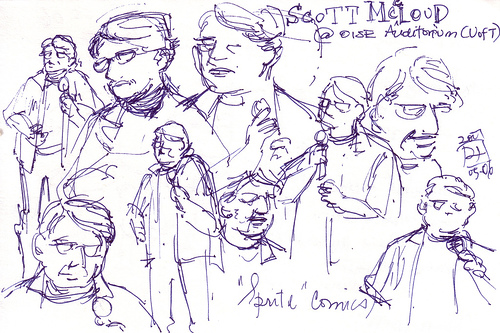 SCOTT McLOUD
@ OISE Auditorium (UofT)
05.06
"Sprite" comics